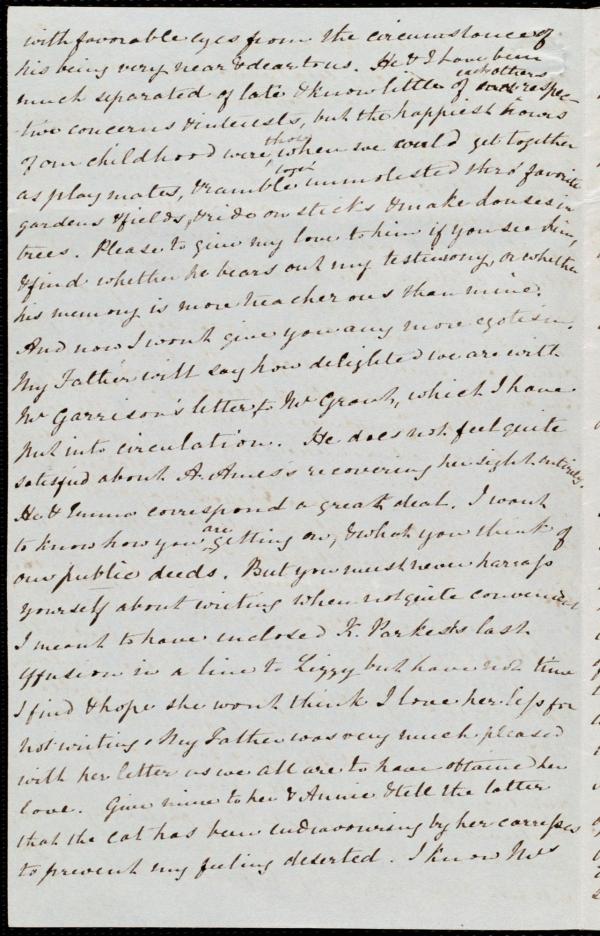 with favorable eyes from the circumstance of
his being very near & dear to us. He & I have been
much separated of late & know little of each others respec-
tive concerns & interests, but the happiest hours
of our childhood were those when we could get together
as playmates, & ramble unmolested thro' favorite
gardens & fields, & ride on sticks & make houses in
trees. Please to give my love to him if you see him,
& find whether he bears out my testimony, or whether
his memory is more treacherous than mine.
And now I wont give you any more egotism.
My Father will say how delighted we are with
Mr Garrison's letter to Mr which I have
put into circulation. He does not feel quite
satisfied about A. Ames's recovering her sight entirely.
He & Emma correspond a great deal. I want
to know how you are getting on, & what you think of
our public deeds. But you must never harrass
yourself about writing when not quite convenient
I meant to have inclosed K. last
effusion in a line to Lizzy but have not time
I find & hope she wont think I love her less for
not writing. My Father was very much pleased
with her letter as we all are to have obtained her
love. Give mine to her & Annie & tell the latter
that the cat has been endeavouring by her caresses
to prevent my feeling deserted. I know Mrs